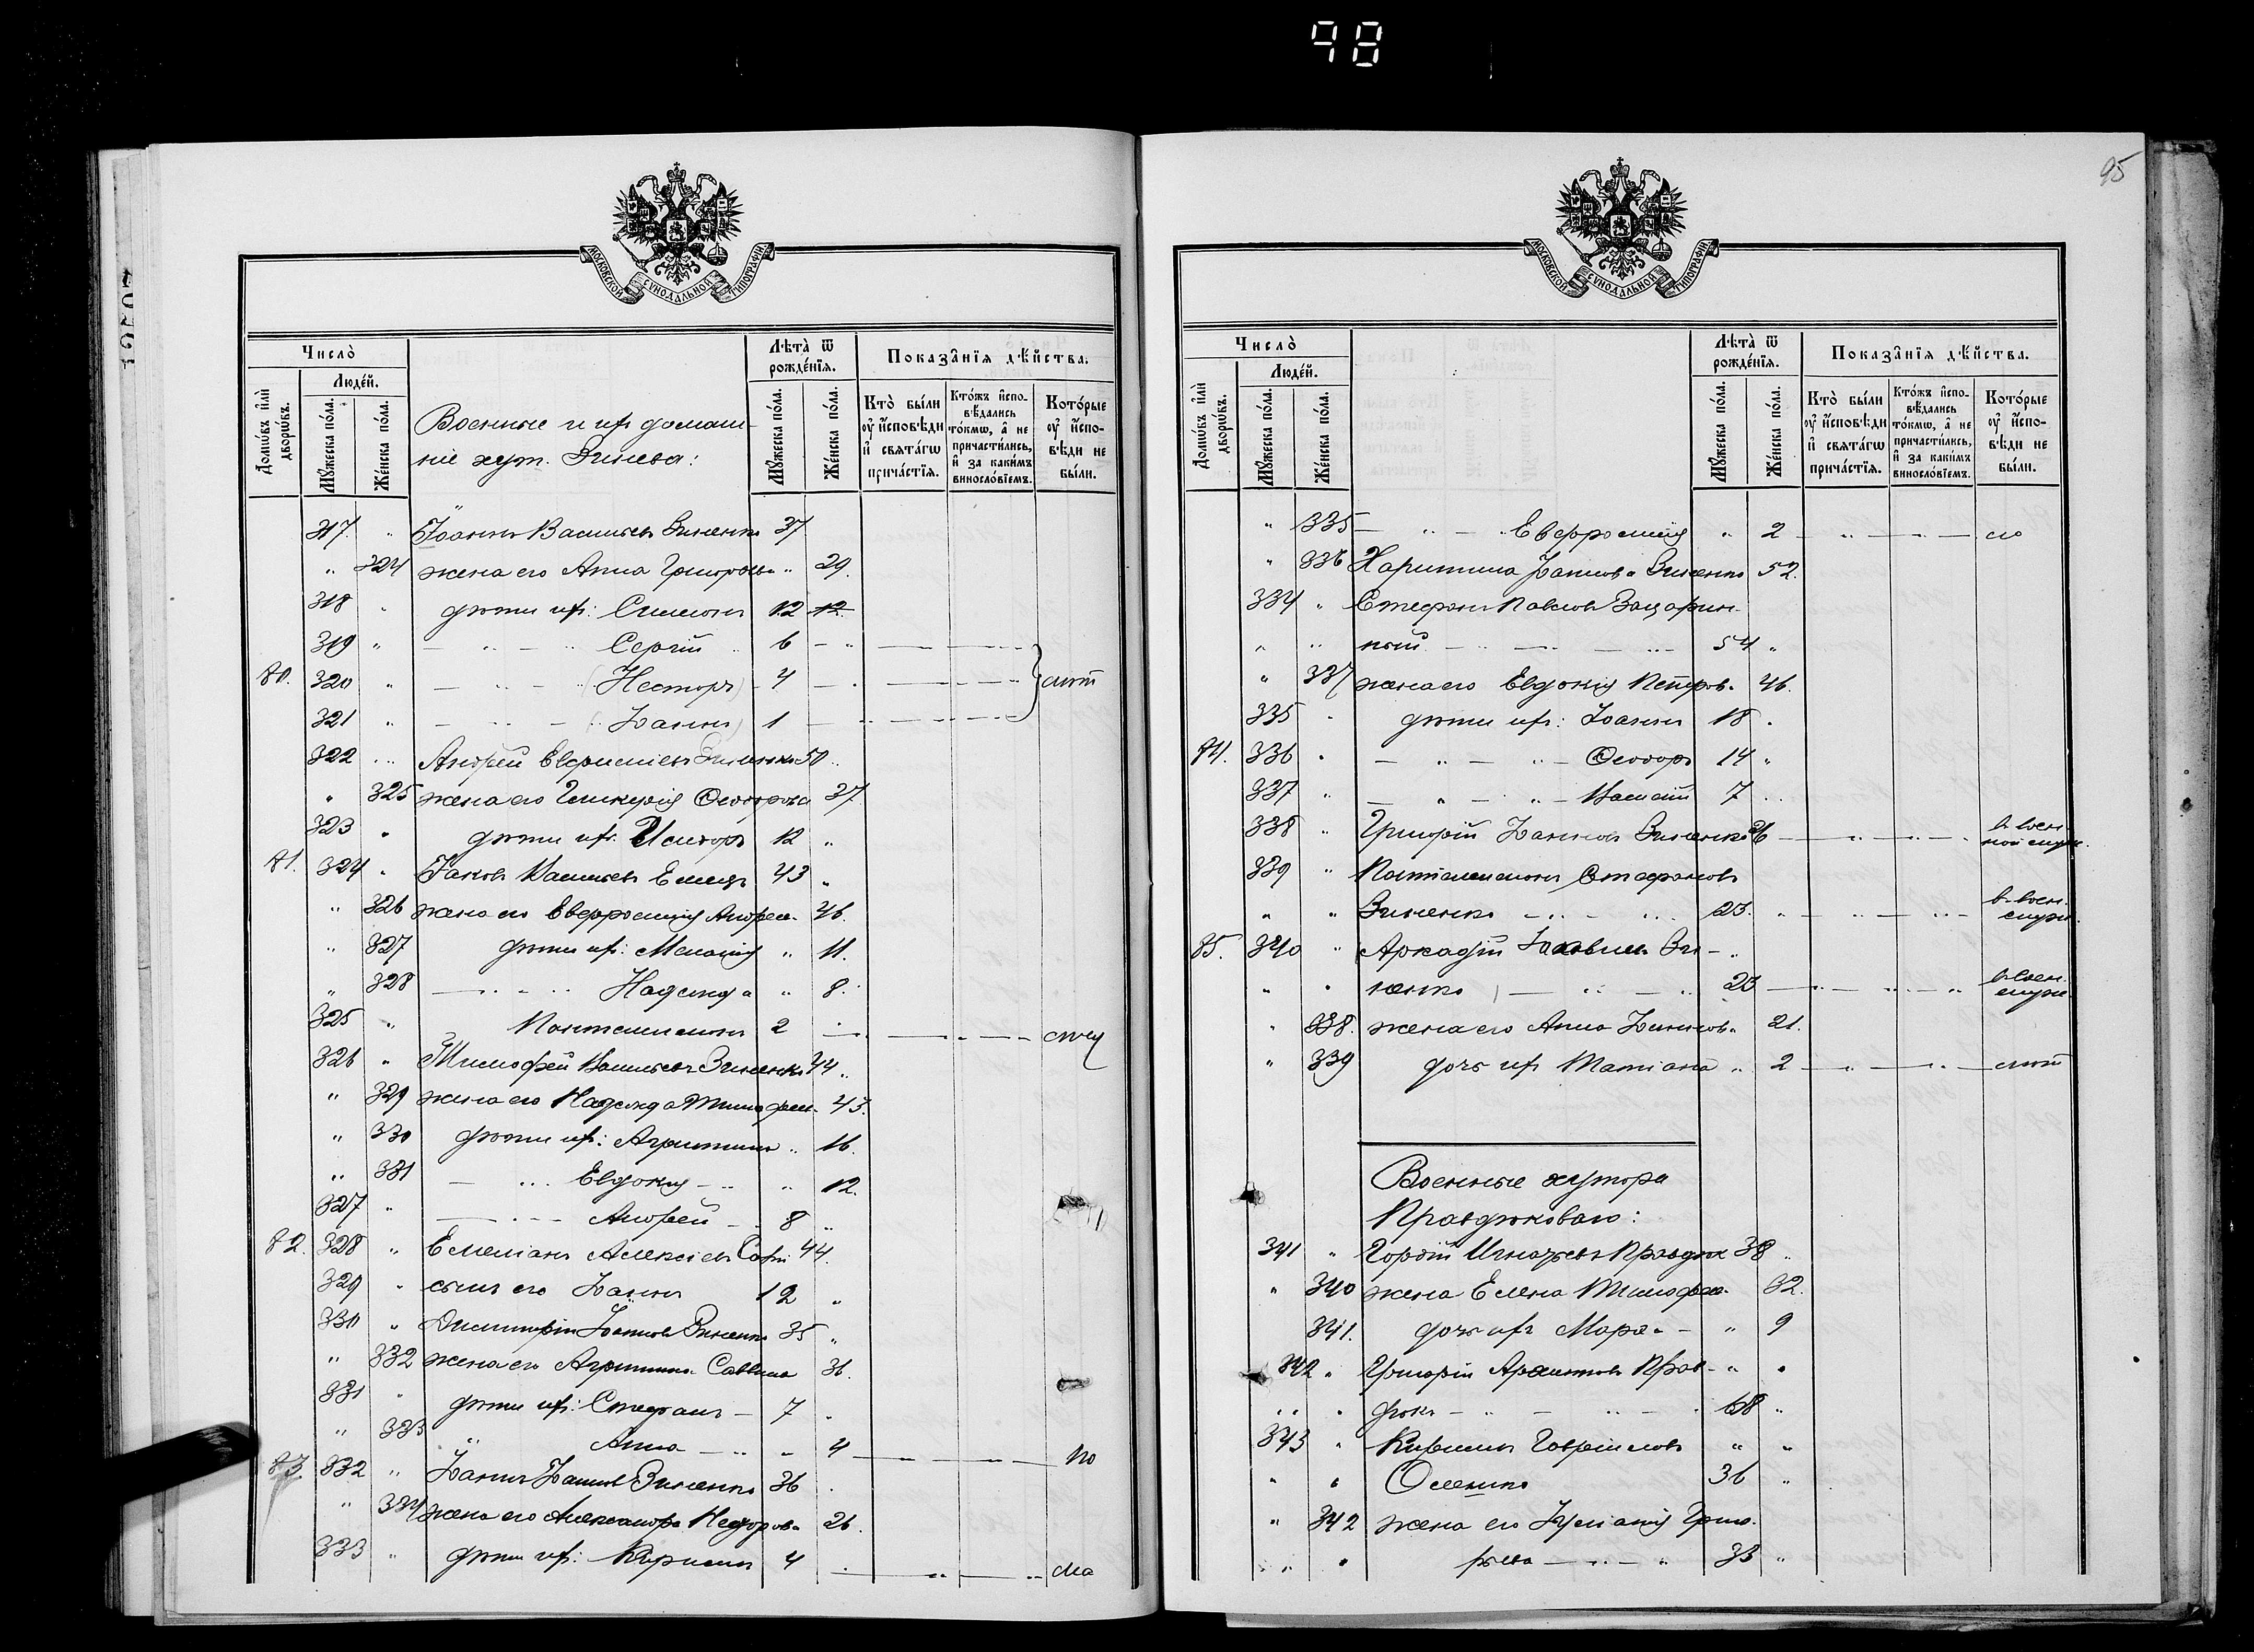 98
МОСКОВСКОЙ СУНОДАЛЬНОЙ ТИПОГРАФІИ
Число̀
Людéй.
Домѡ́въ и҆лѝ дворѡ́въ.
Мꙋ́жеска по́ла.
Же́нска по́ла.
Военные и ихъ домаш-
ніе хут. Зинева:
Лѣта̀ ѿ рожде́нїя.
Мꙋ́жеска по́ла.
Же́нска по́ла.
Показа̑нїя дѣ́йства.
Кто̀ бы́ли ᲂу҆ и҆́сповѣди и҆ свята́гѡ прича́стїя.
Кто́жъ и҆спо-вѣ́дались то́кмѡ, а҆ не причасти́лись, и҆ за каки́мъ винослѡ́вїемъ.
Кото́рые ᲂу҆ и҆́спо-вѣди не бы́ли.
317. " Іоаннъ Васильевъ Зиненко 37
" 324 жена его Анна Григорьева " 29.
318 " дѣти ихъ: Симеонъ 12 12
319 " Сергій 6
80. 320 " (Несторъ) 4
321 " (Іоаннъ) 1
322 " Андрей Евфиміевъ Зиненко 50
" 325 жена его Гликерія Ѳеодорова 37
323 " дѣти ихъ: Исидоръ 12 "
81. 324 " Іаковъ Васильевъ 43 "
" 326 жена его Евфросинія Андреев. 46.
" 327 дѣти ихъ: Меланія " 11.
" 328 Надежда " 8.
325 " Пантелеимонъ 2
326 " Тимофей Васильевъ Зиненко 44 "
" 329 жена его Надежда Тимофеев. 43.
" 330 дѣти ихъ: Агрипина " 16.
" 331 Евдокія " 12.
327 " Андрей 8 "
82. 328 " Емеліанъ Алексіевъ 44.
329 " сынъ его Іоаннъ 12 "
330 " Димитрій Іоанновъ Зиненко 35 "
" 332 жена его Агрипина Саввина 36.
331 " дѣти ихъ: Стефанъ 7 "
" 333 " Анна " 4
83. 332 " Іоаннъ Іоанновъ Зиненко 36
" 334 жена его Александра Никифорова 26.
333 " дѣти ихъ: Кириллъ 4
95
МОСКОВСКОЙ СУНОДАЛЬНОЙ ТИПОГРАФІИ
Число̀
Людéй.
Домѡ́въ и҆лѝ дворѡ́въ.
Мꙋ́жеска по́ла.
Же́нска по́ла.
Лѣта̀ ѿ рожде́нїя.
Мꙋ́жеска по́ла.
Же́нска по́ла.
Показа̑нїя дѣ́йства.
Кто̀ бы́ли ᲂу҆ и҆́сповѣди и҆ свята́гѡ прича́стїя.
Кто́жъ и҆спо-вѣ́дались то́кмѡ, а҆ не причасти́лись, и҆ за каки́мъ винослѡ́вїемъ.
Кото́рые ᲂу҆ и҆́спо-вѣди не бы́ли.
" 335 Евфросинія " 2
" 336 Харитина Іоаннова Зиненко 52.
334 " Стефанъ Павловъ Зацарин-
" " ный 54 "
" 337 жена его Евдокія Петров. 46.
335 " дѣти ихъ: Іоаннъ 18 "
84. 336 " Ѳеодоръ 14 "
337 " Василій 7
338 " Григорій Іоанновъ Зиненко 26 въ воен-
ной служ.
339 " Пантелеимонъ Стефановъ
" " Зиненко 23. въ воен.
служ.
85. 340 " Аркадій Іаковлев. Зи-
" " ненко 23 въ воен.
служ.
" 338. жена его Анна Іоаннов. 21.
" 339 дочь ихъ Татіана " 2
Военные хутора
Правдюковаго:
341 " Гордій Игнатьевъ Правдюк 38
" 340 жена Елена Тимофеев. 32.
341. дочь ихъ Марѳа " 9
342 " Григорій Правдюкъ
68 "
343 " Кириллъ Гавріиловъ " "
" " 36 "
" 342 жена его Іуліанія Григо-
рьева 33 "